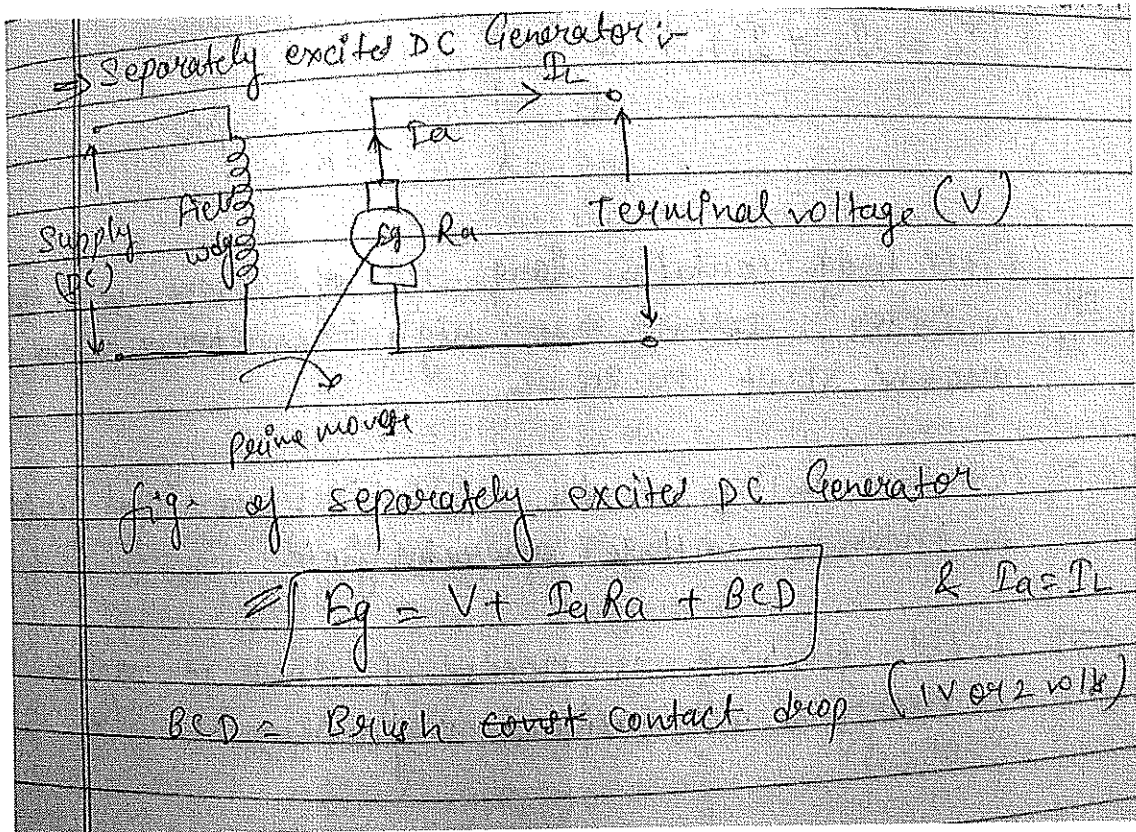 ⇒ Separately excited DC Generator :-
IL
Ia
Field
wdg
Supply
(DC)
Eg
Ra
Terminal voltage (V)
Prime mover
fig. of separately excited DC Generator
Eg = V + Ia Ra + BCD & Ia = IL
BCD = Brush const contact drop (1V or 2 volts)